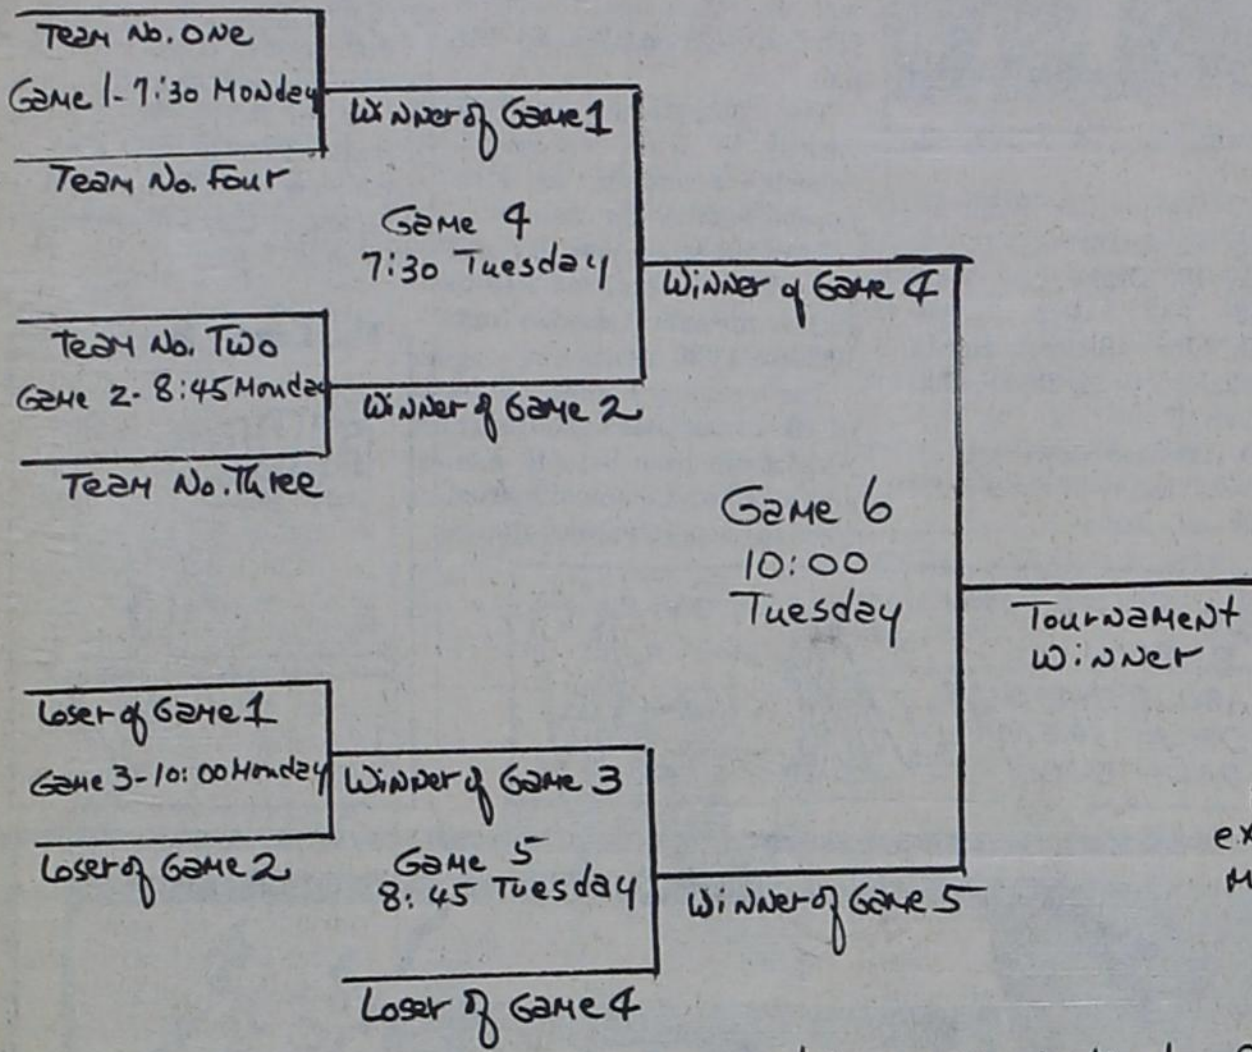 Team No. One
Game 1-7:30 Monday
Team No. Four
Winner of Game 1
Game 4
7:30 Tuesday
Team No. Two
Game 2-8:45 Monday
Team No. Three
Winner of Game 2
Winner of Game 4
Game 6
10:00
Tuesday
Tournament
Winner
Loser of Game 1
Game 3-10:00 Monday
Loser of Game 2
Winner of Game 3
Game 5
8:45 Tuesday
Loser of Game 4
Winner of Game 5